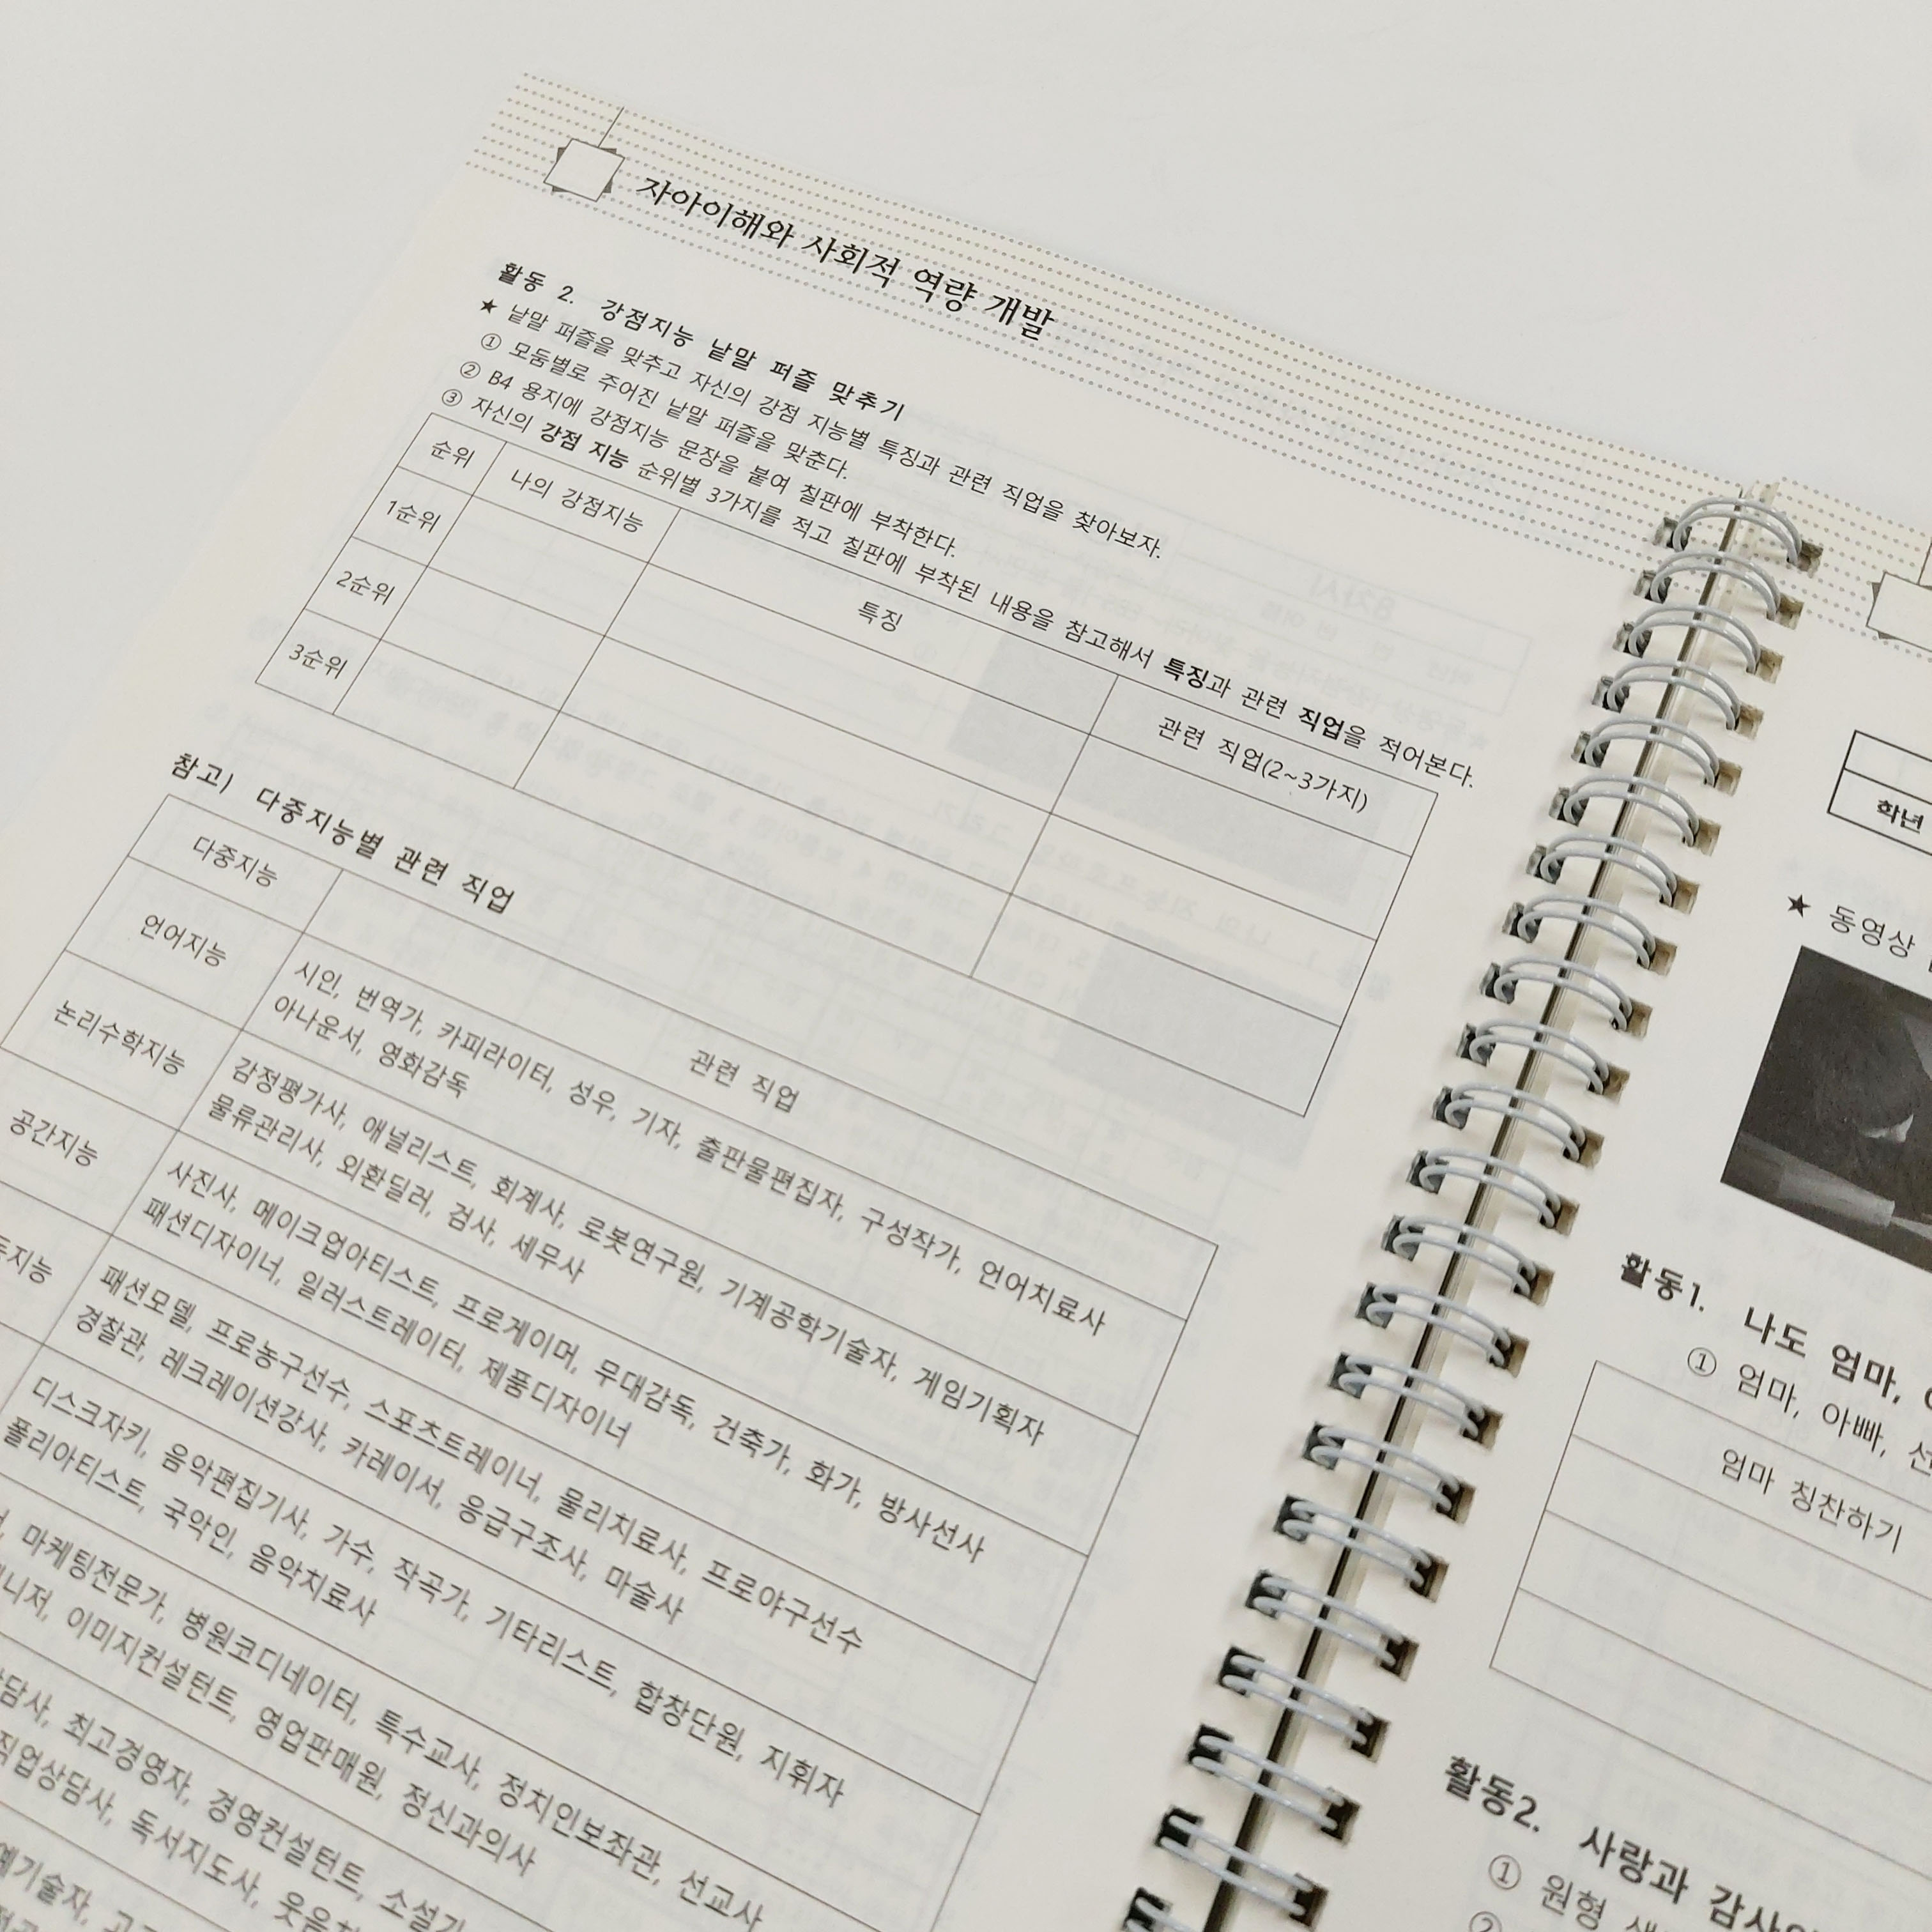 자아이해와 사회적 역량 개발
활동 2. 강점지능 낱말 퍼즐 맞추기
★ 낱말 퍼즐을 맞추고 자신의 강점 지능별 특징과 관련 직업을 찾아보자.
① 모둠별로 주어진 낱말 퍼즐을 맞춘다.
② B4 용지에 강점지능 문장을 붙여 칠판에 부착한다.
③ 자신의 강점 지능 순위별 3가지를 적고 칠판에 부착된 내용을 참고해서 특징과 관련 직업을 적어본다.
순위 나의 강점지능 특징 관련 직업(2~3가지)
1순위
2순위
3순위
참고) 다중지능별 관련 직업
다중지능 관련 직업
언어지능 시인, 번역가, 카피라이터, 성우, 기자, 출판물편집자, 구성작가, 언어치료사
아나운서, 영화감독
논리수학지능 감정평가사, 애널리스트, 회계사, 로봇연구원, 기계공학기술자, 게임기획자
물류관리사, 외환딜러, 검사, 세무사
공간지능 사진사, 메이크업아티스트, 프로게이머, 무대감독, 건축가, 화가, 방사선사
패션디자이너, 일러스트레이터, 제품디자이너
패션모델, 프로농구선수, 스포츠트레이너, 물리치료사, 프로야구선수
경찰관, 레크레이션강사, 카레이서, 응급구조사, 마술사
디스크자키, 음악편집기사, 가수, 작곡가, 기타리스트, 합창단원, 지휘자
폴리아티스트, 국악인, 음악치료사
마케팅전문가, 병원코디네이터, 특수교사, 정치인보좌관, 선교사
이미지컨설턴트, 영업판매원, 정신과의사
최고경영자, 경영컨설턴트,
직업상담사, 독서지도사,
학년
★ 동영상
활동1. 나도 엄마,
① 엄마, 아빠,
엄마 칭찬하기
활동2. 사랑과
① 원형
②